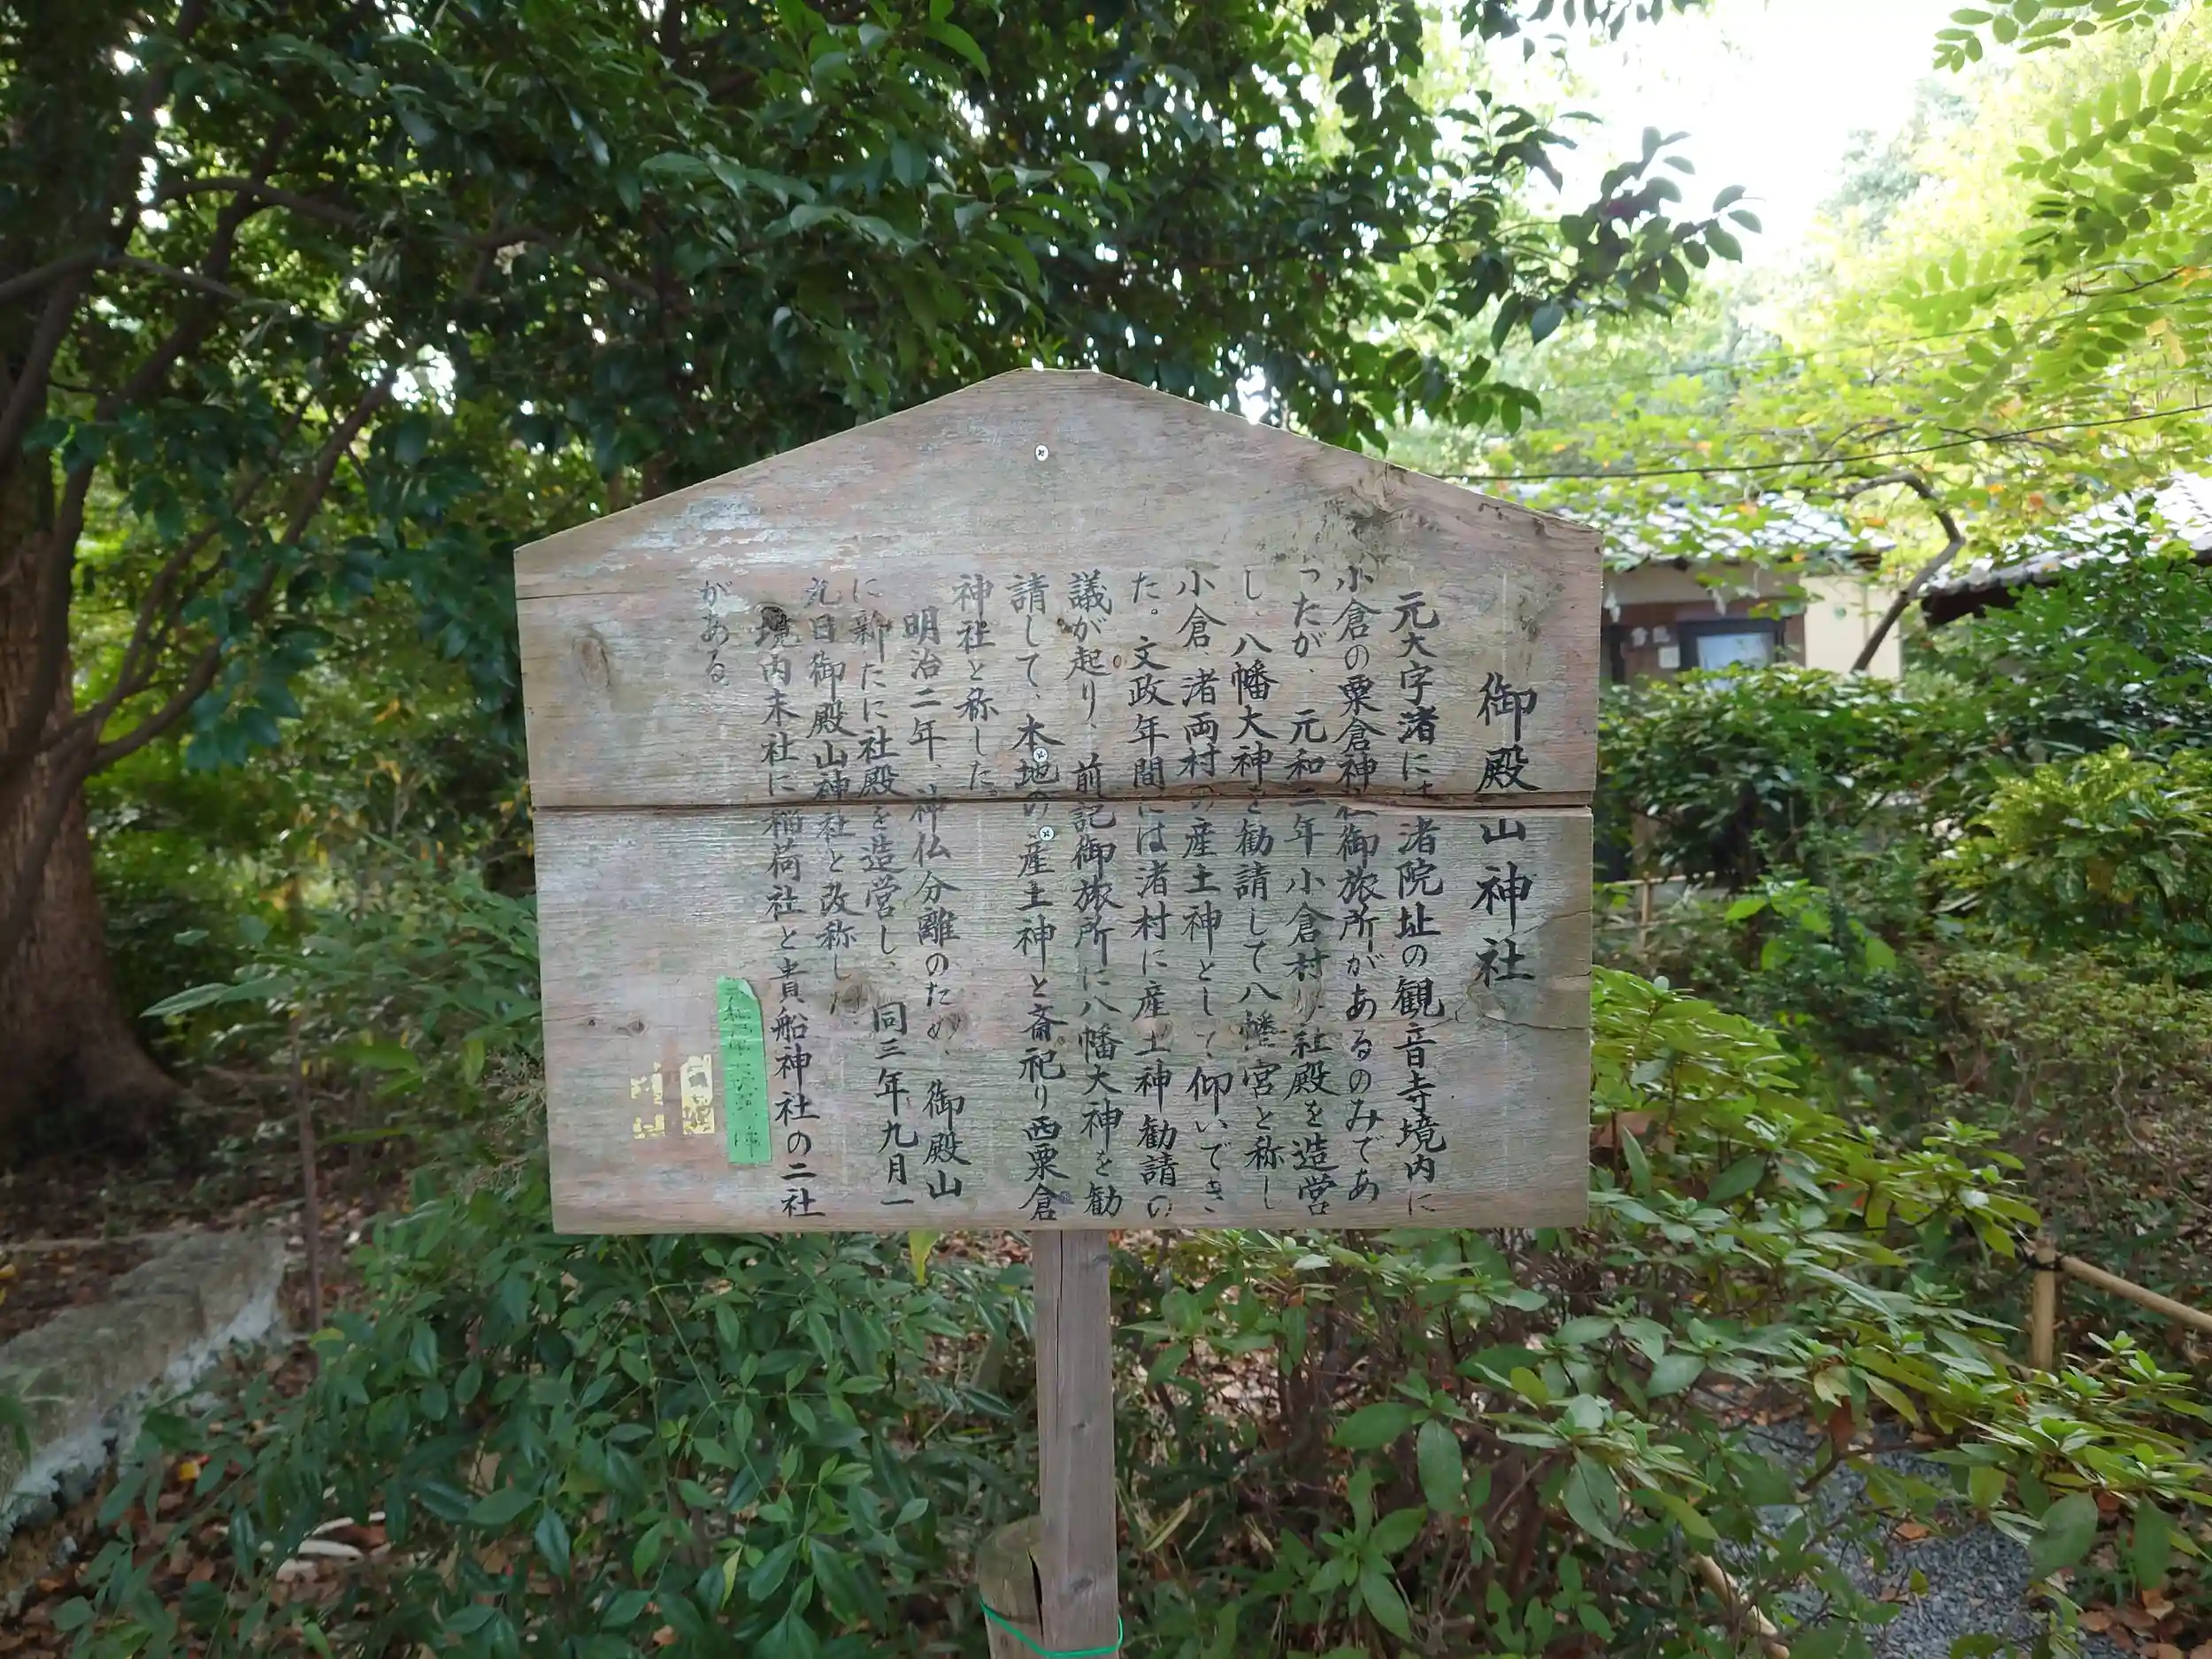 御殿山神社
元大字渚には渚院址の観音寺境内に
小倉の粟倉神社御旅所があるのみであ
ったが、元和二年小倉村より社殿を造営
し、八幡大神を勧請して八幡宮と称し
小倉、渚両村の産土神として仰いでき
た。文政年間には渚村に産土神勧請の
議が起り、前記御旅所に八幡大神を勧
請して、本地の産土神と斎祀り西粟倉
神社と称した。
明治二年、神仏分離のため、御殿山
に新たに社殿を造営し、同三年九月一
九日御殿山神社と改称した。
境内末社に稲荷社と貴船神社の二社
がある